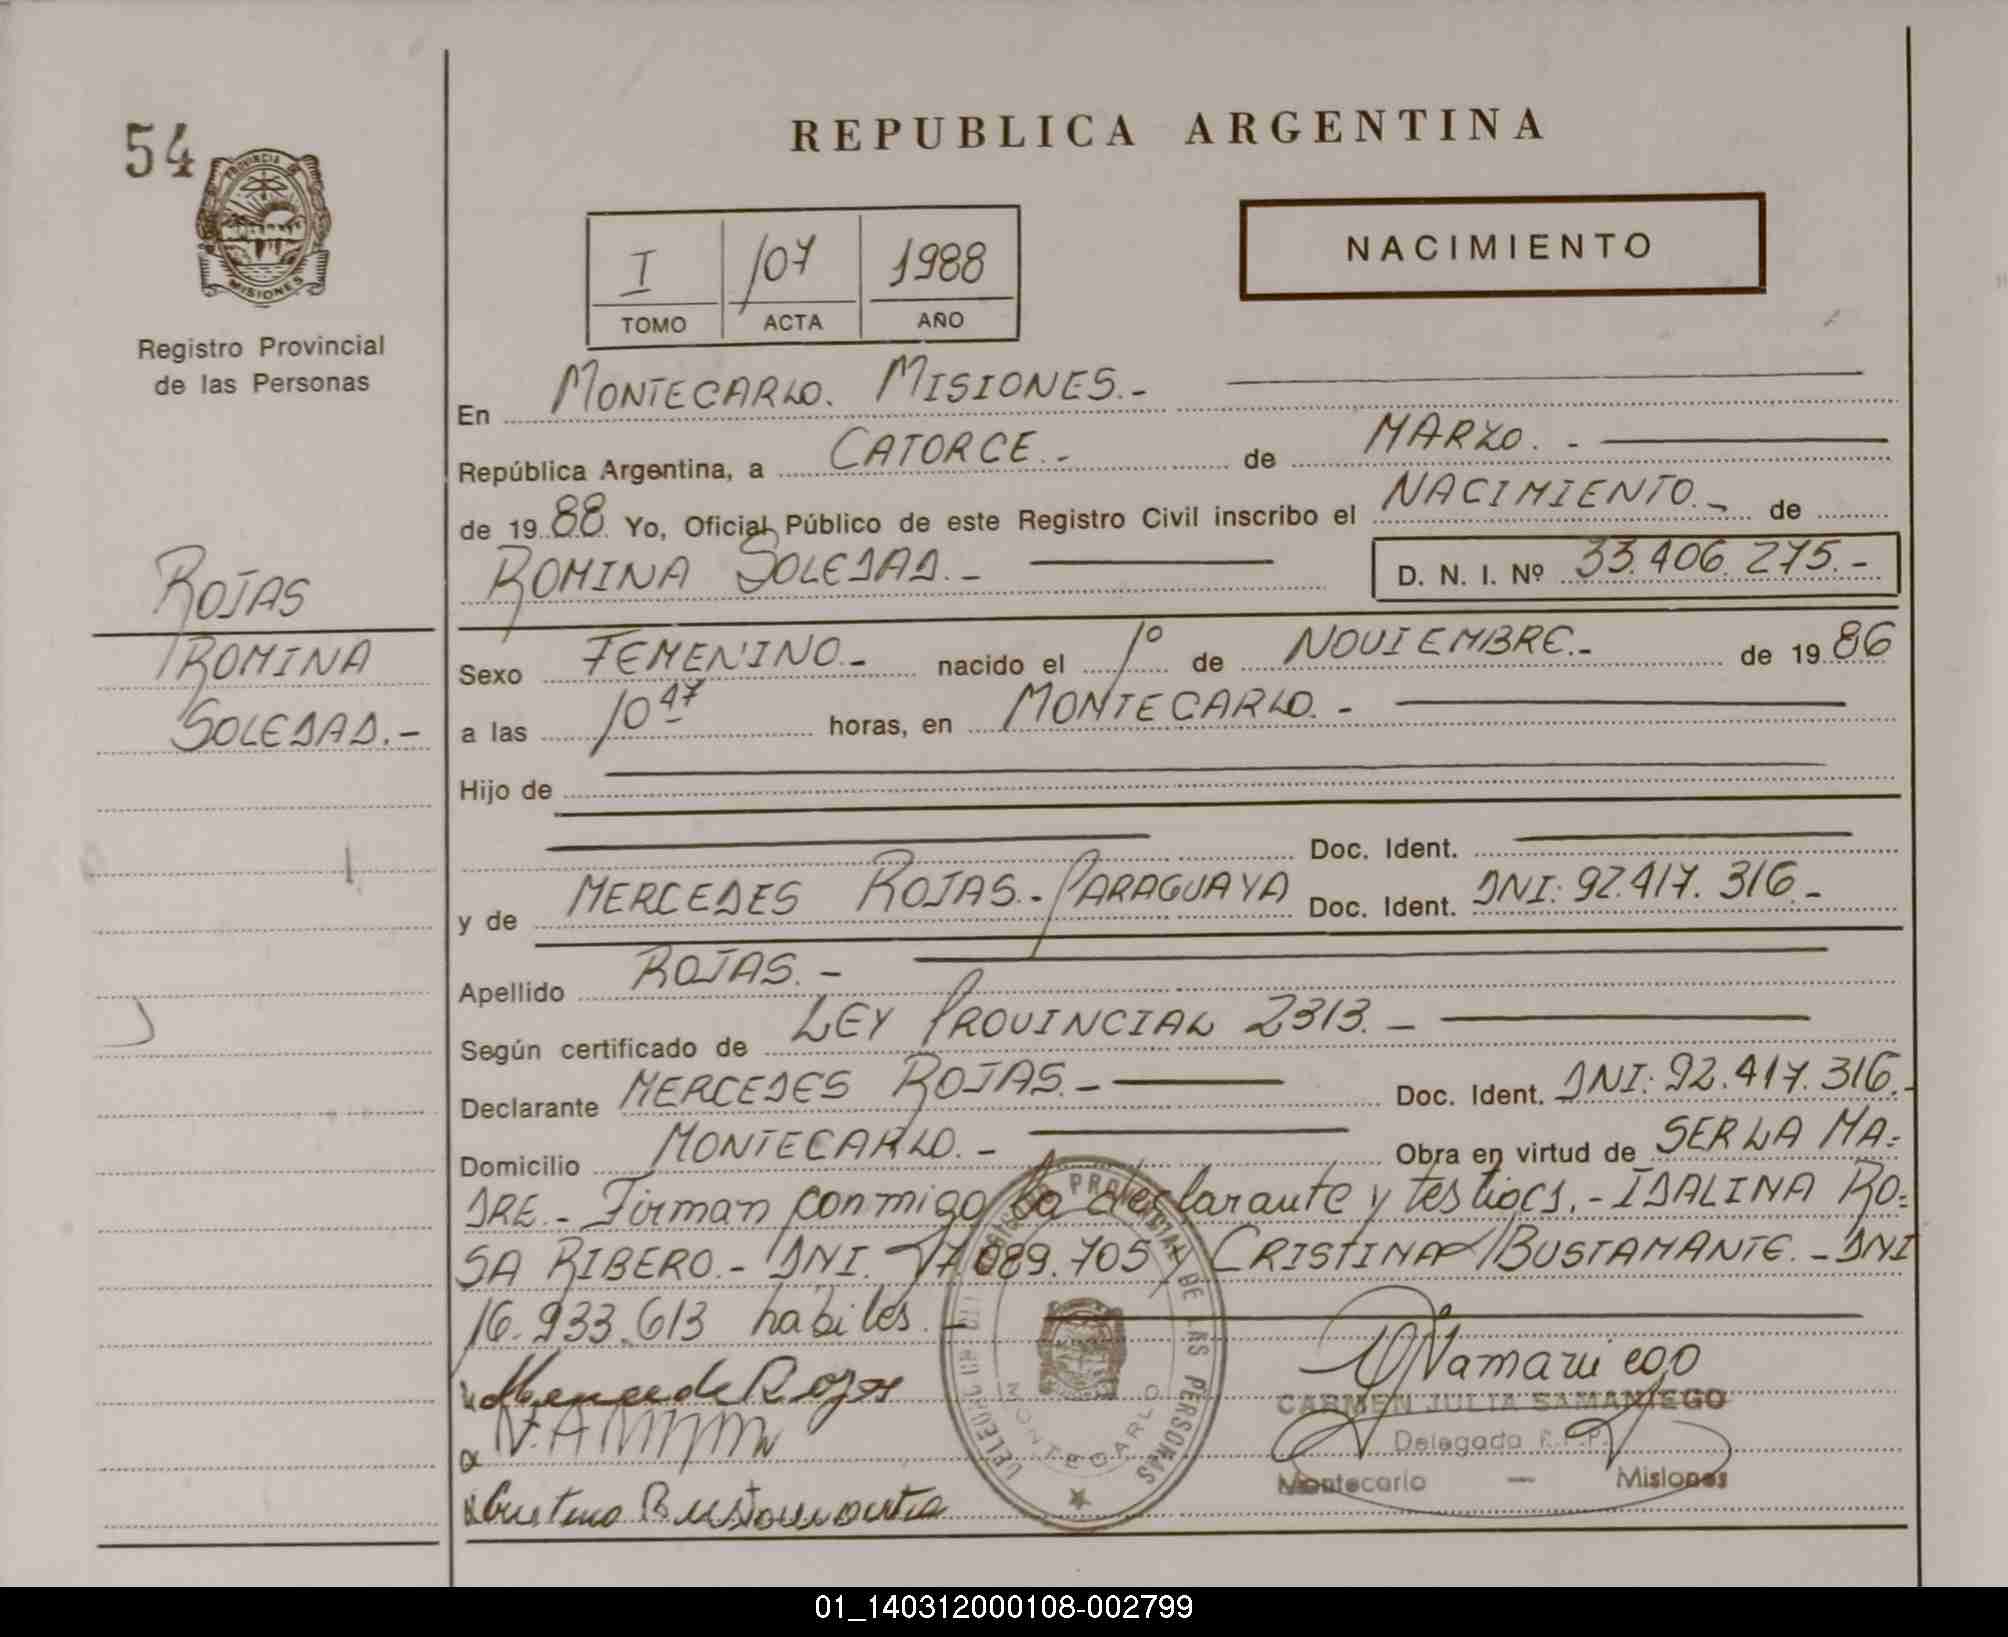 54
PROVINCIA DE
MISIONES
Registro Provincial
de las Personas
ROJAS
ROMINA
SOLEDAD.-
REPUBLICA ARGENTINA
I 107 1988
TOMO ACTA AÑO
NACIMIENTO
En MONTECARLO. MISIONES.-
República Argentina, a CATORCE.- de MARZO.-
de 19 88 Yo, Oficial Público de este Registro Civil inscribo el NACIMIENTO.- de
ROMINA SOLEDAD.- D. N. I. Nº 33.406.275.-
Sexo FEMENINO.- nacido el 1º de NOVIEMBRE.- de 19 86
a las 10 47 horas, en MONTECARLO.-
Hijo de
Doc. Ident.
y de MERCEDES ROJAS.- PARAGUAYA Doc. Ident. DNI: 92.417.316.-
Apellido ROJAS.-
Según certificado de LEY PROVINCIAL 2313.-
Declarante MERCEDES ROJAS.- Doc. Ident. DNI: 92.417.316.-
Domicilio MONTECARLO.- Obra en virtud de SER LA MA=
DRE.- Firman conmigo la declarante y testigos.- IDALINA RO=
SA RIBERO.- DNI. 17.089.705 y CRISTINA BUSTAMANTE.- DNI
16.933.613 habiles.-
Rojas
Cristina Bustamante
PROVINCIAL DE LAS PERSONAS
MONTECARLO
Samaniego
CARMEN JULIA SAMANIEGO
Delegada R.P.P.
Montecarlo — Misiones
01_140312000108-002799